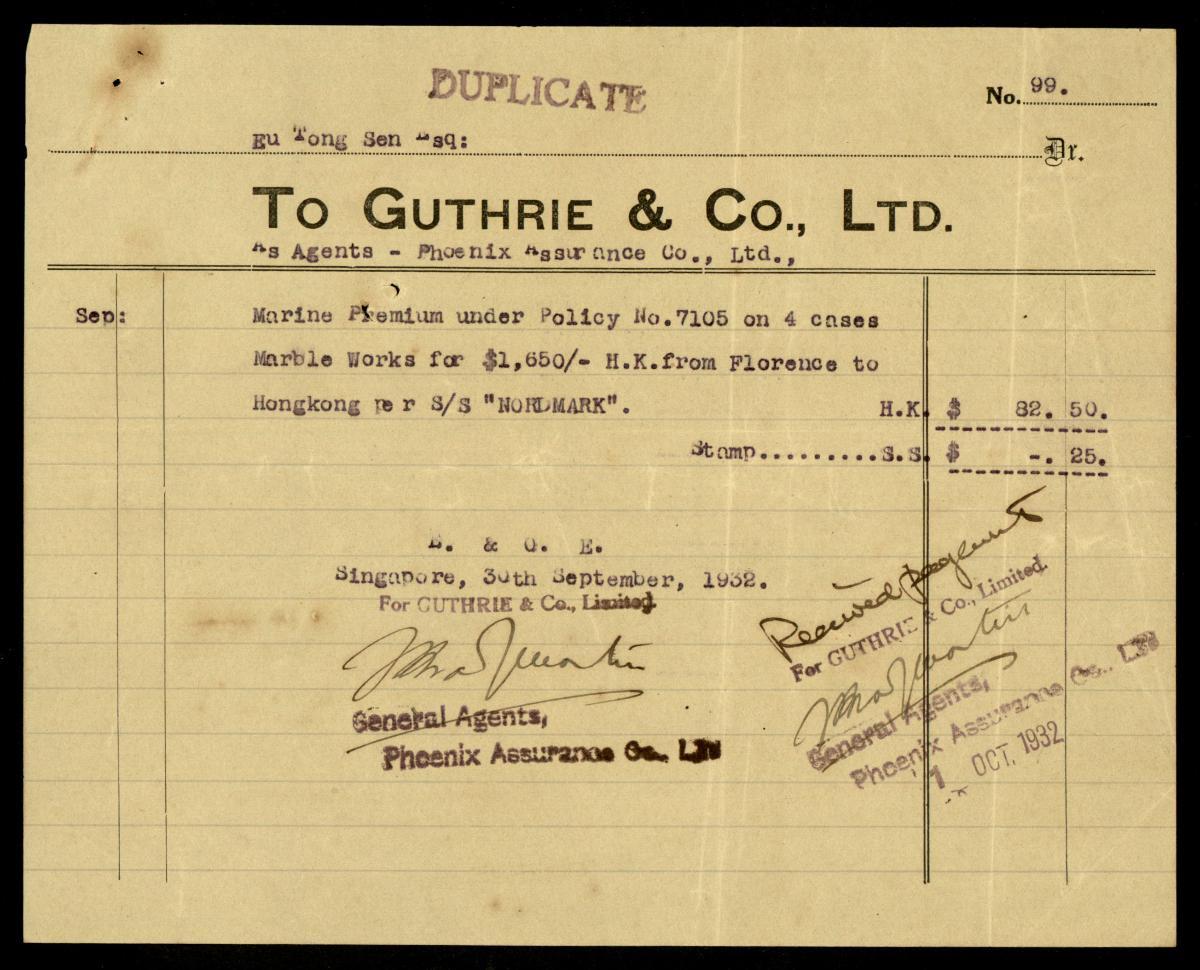 DUPLICATE
No. 99.
Eu Tong Sen Esq:
Dr.
TO GUTHRIE & CO., LTD.
As Agents - Phoenix Assurance Co., Ltd.,
Sep: Marine Premium under Policy No.7105 on 4 cases
Marble Works for $1,650/- H.K.from Florence to
Hongkong per S/S "NORDMARK". H.K. $ 82. 50.
Stamp..........S.S. $ -. 25.
E. & O. E.
Singapore, 30th September, 1932.
For GUTHRIE & Co., Limited.
General Agents,
Phoenix Assurance Co., Ltd
Received payment
For GUTHRIE & Co., Limited.
General Agents,
Phoenix Assurance Co., Ltd
1 OCT. 1932